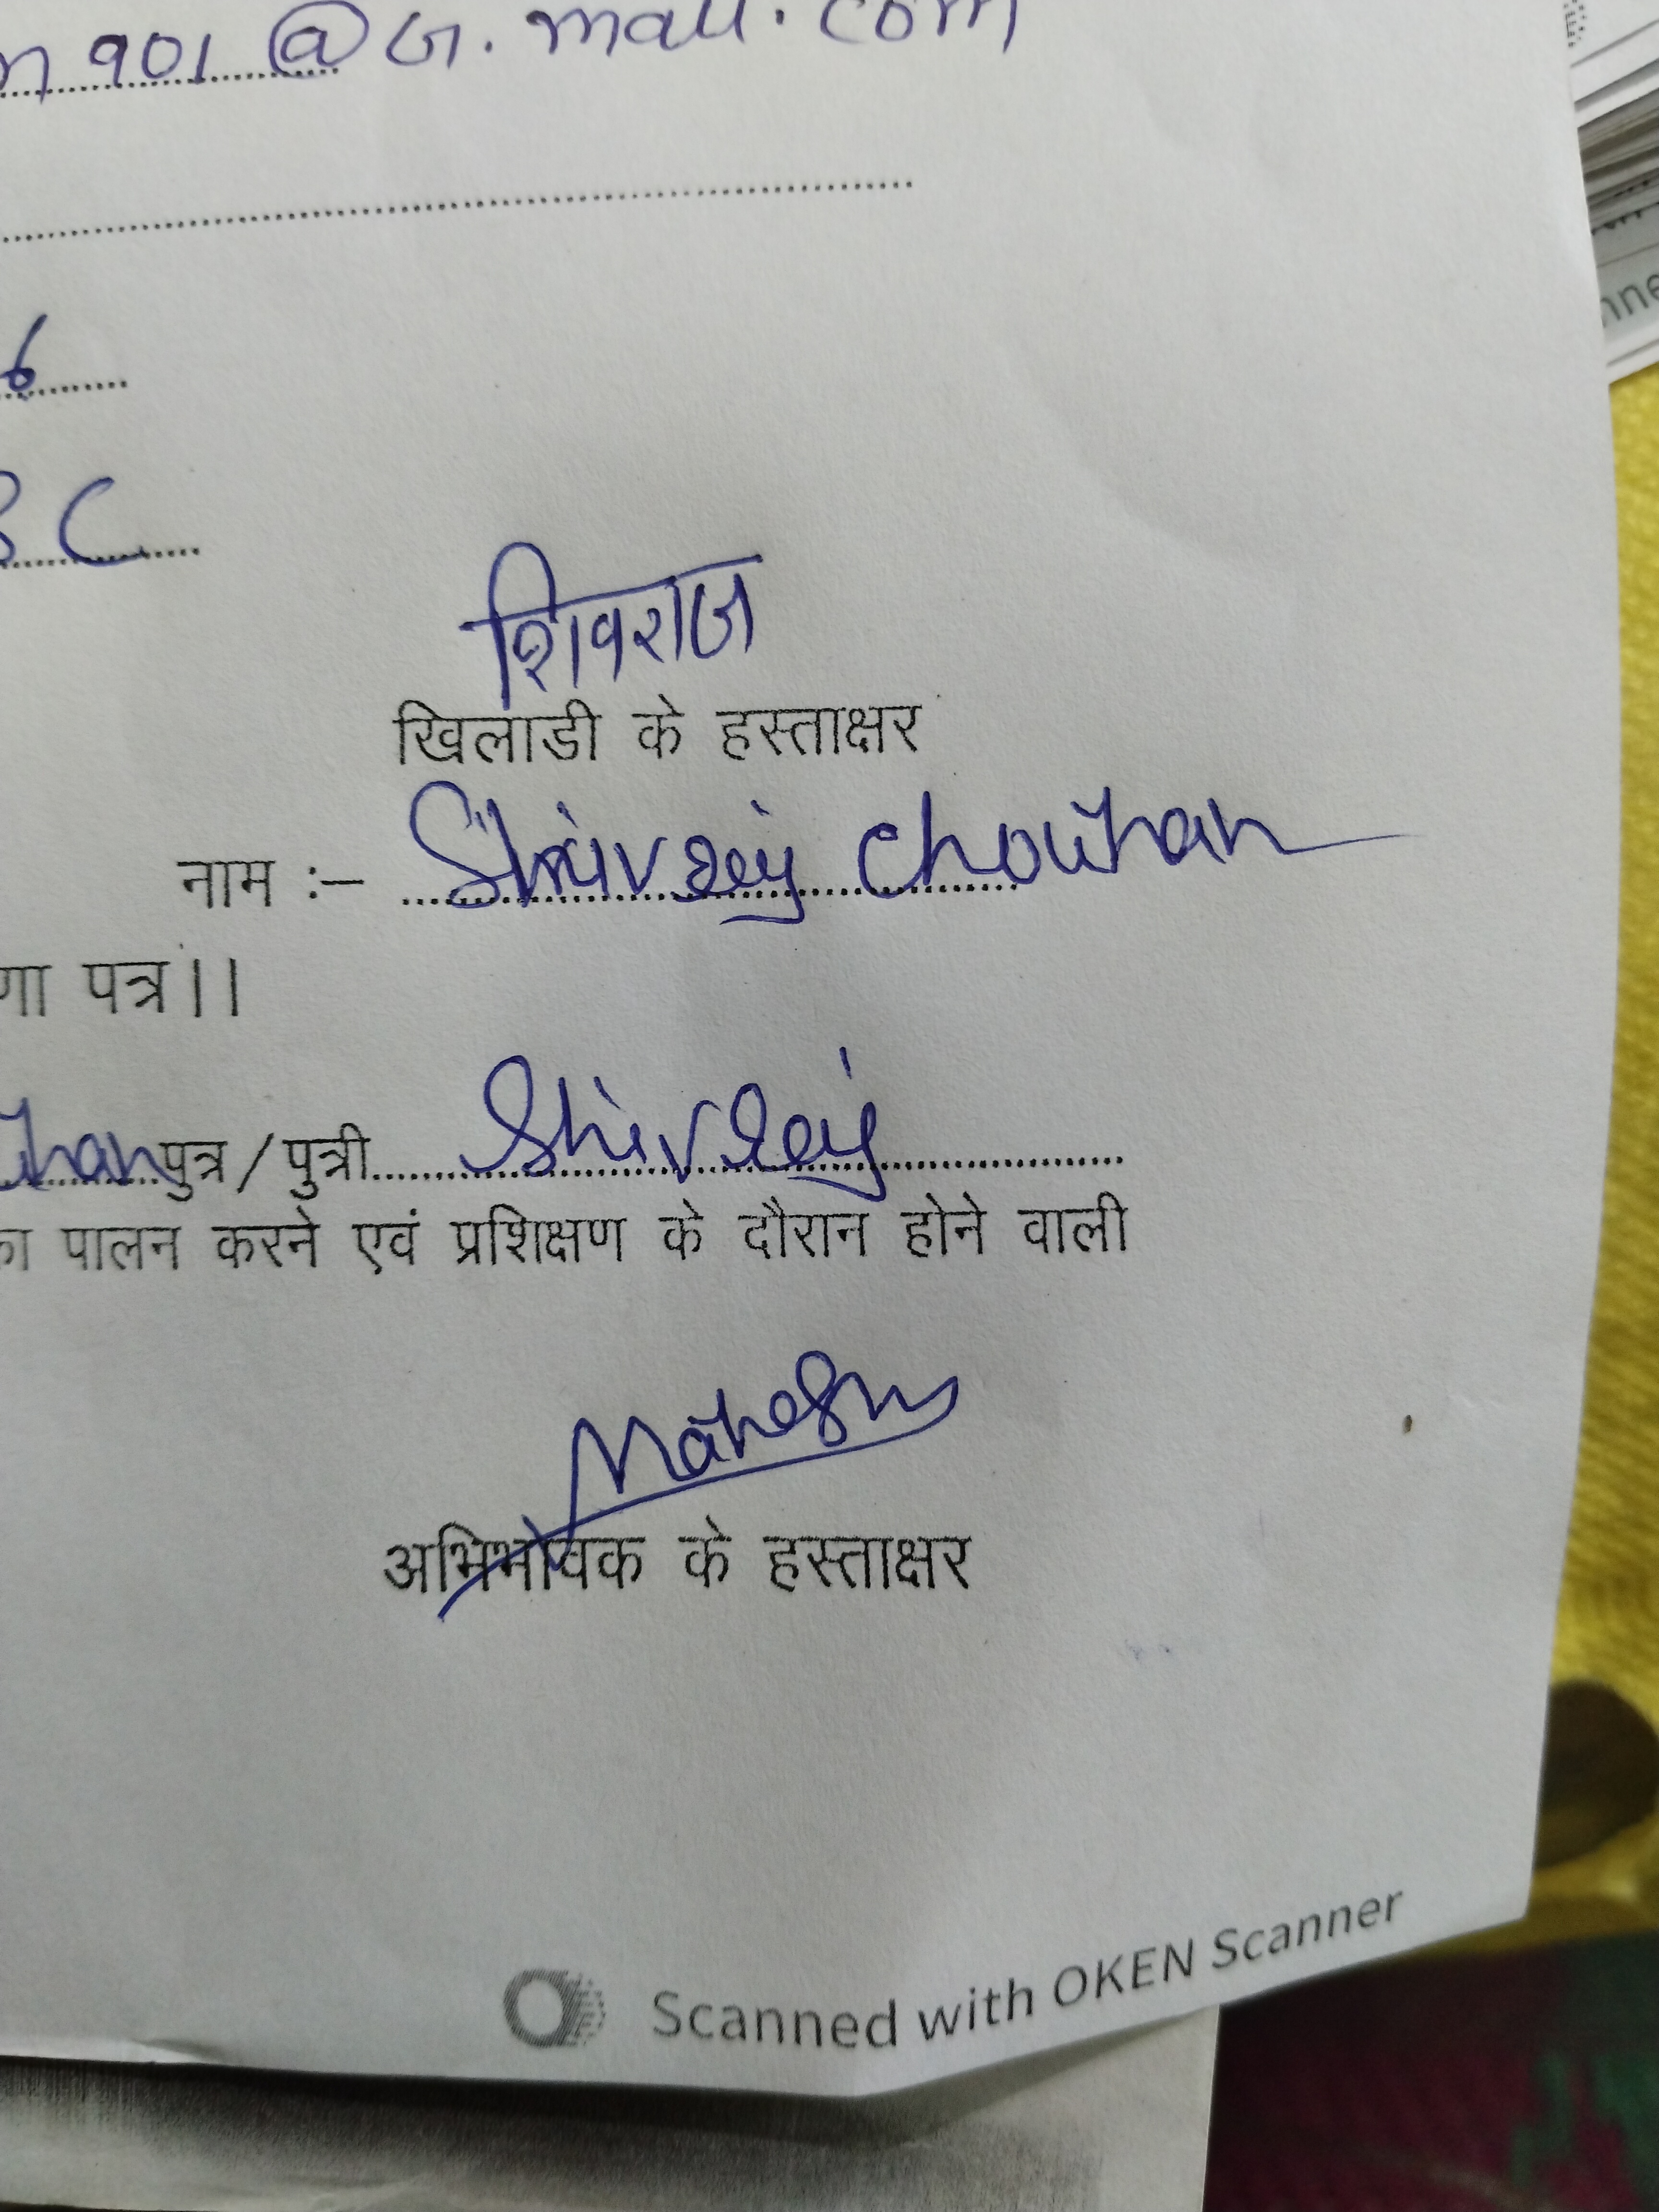 901@G.mail.com
6
C
शिवराज
खिलाडी के हस्ताक्षर
नाम :– Shivraj Chouhan
पत्र।।
पुत्र/पुत्री Shivraj
पालन करने एवं प्रशिक्षण के दौरान होने वाली
Mahesh
अभिभावक के हस्ताक्षर
Scanned with OKEN Scanner